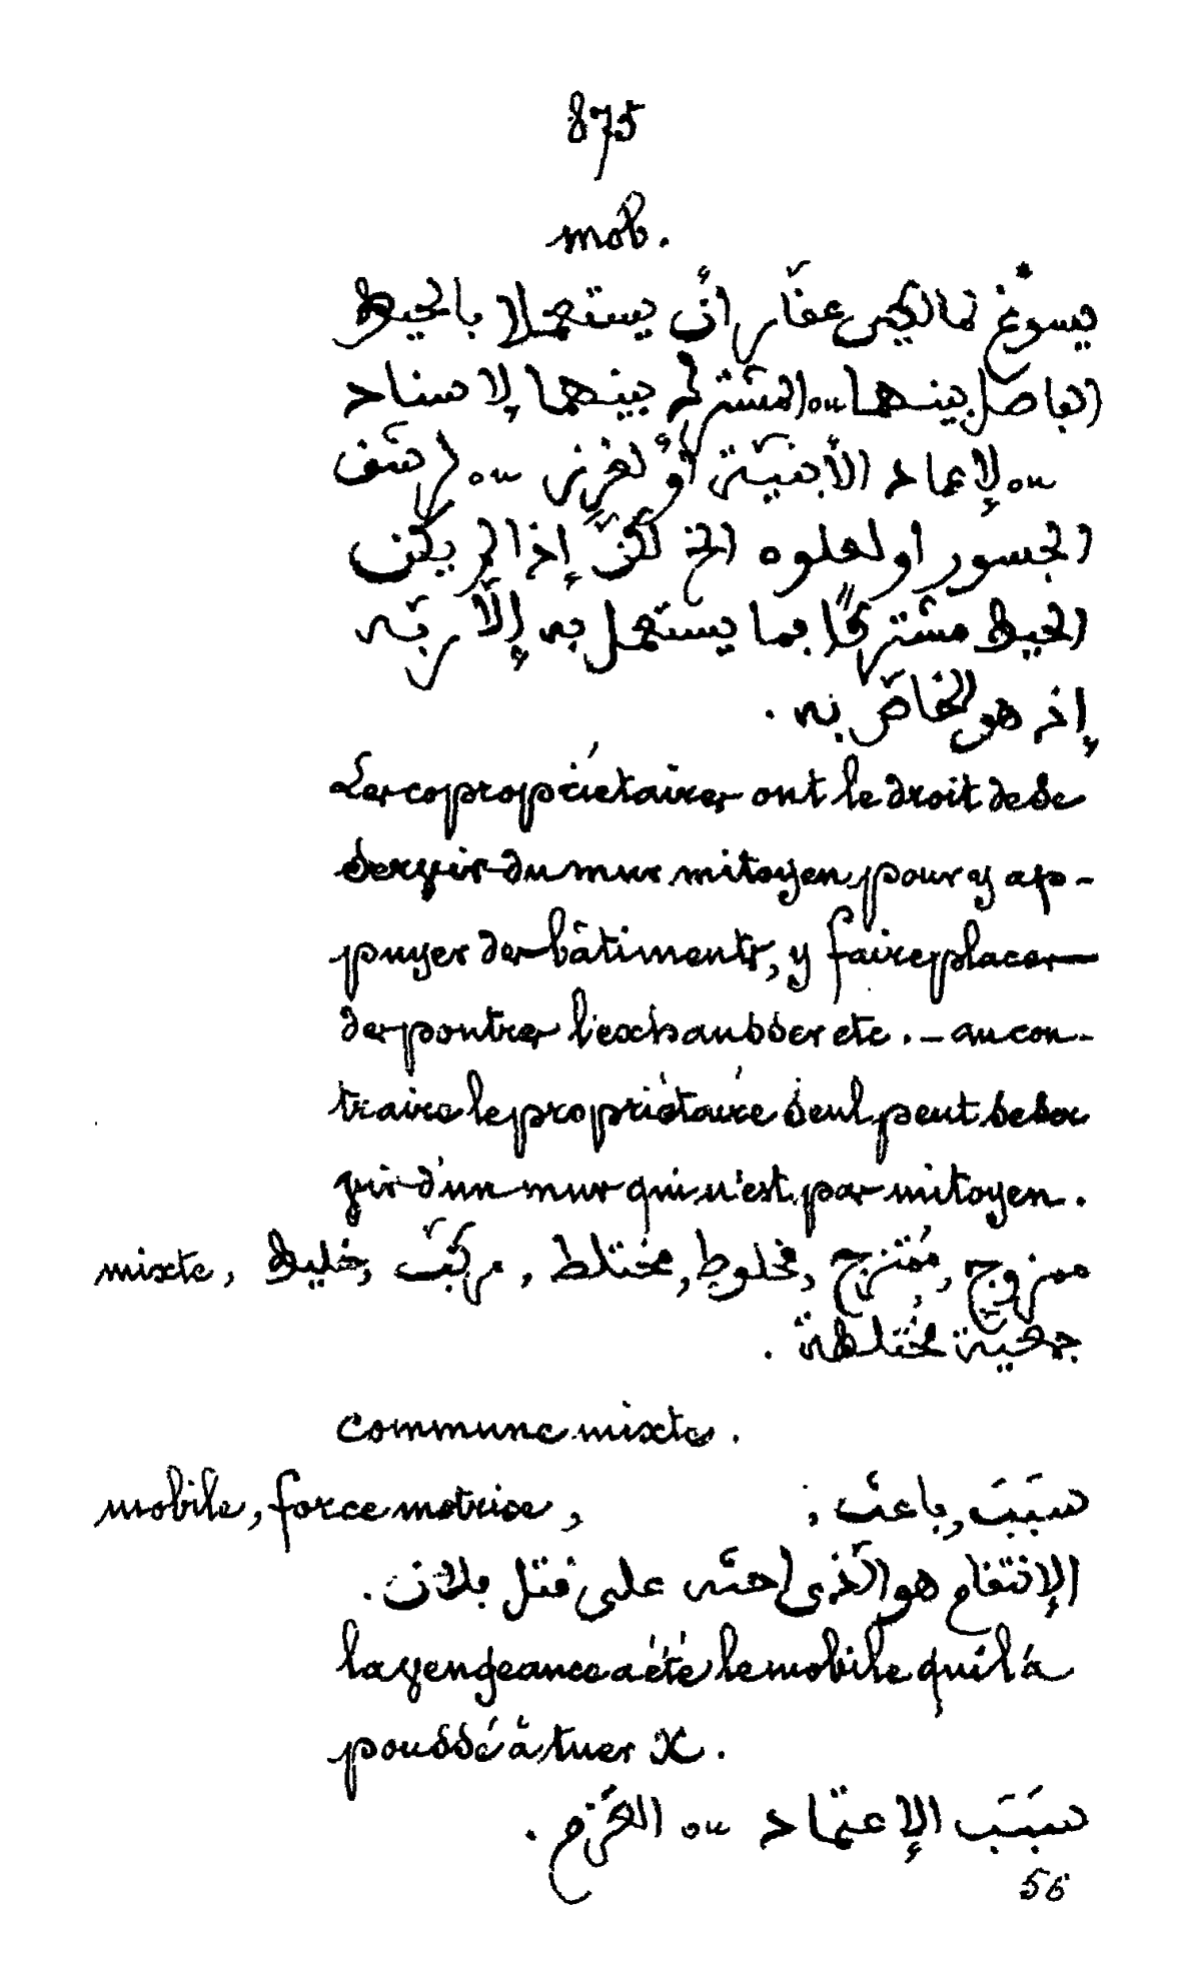 875
mob.
يسوّغ لمالكين عقّار أن يستعملا بالحيط
الفاصل بينهما ou المشترك بينهما لإسناد
ou لإعماد الأبنيّة أو لغرز ou
الجسور او لعلوه الخ لكنّ إذا لم يكن
الحيط مشتركًا فما يستعمل به إلّا ربّه
إذ هو الخاصّ به .
Les copropriétaires ont le droit de se
servir du mur mitoyen pour y ap-
puyer des bâtiments, y faire placer
des poutres l'exhausser etc. - au con-
traire le propriétaire seul peut se ser
vir d'un mur qui n'est pas mitoyen.
mixte, ممزوج, مُمتزج, مخلوط, مختلط, مركّب, خليط
جمعيّة مُختلطة .
commune mixte.
mobile, force motrice, سَبَبَ, باعث ;
الإنتقام هو الّذى احثّه على قتل فلان .
la vengeance a été le mobile qui l'a
poussé à tuer X.
سَبَبَ الإعتماد ou العَزم .
56